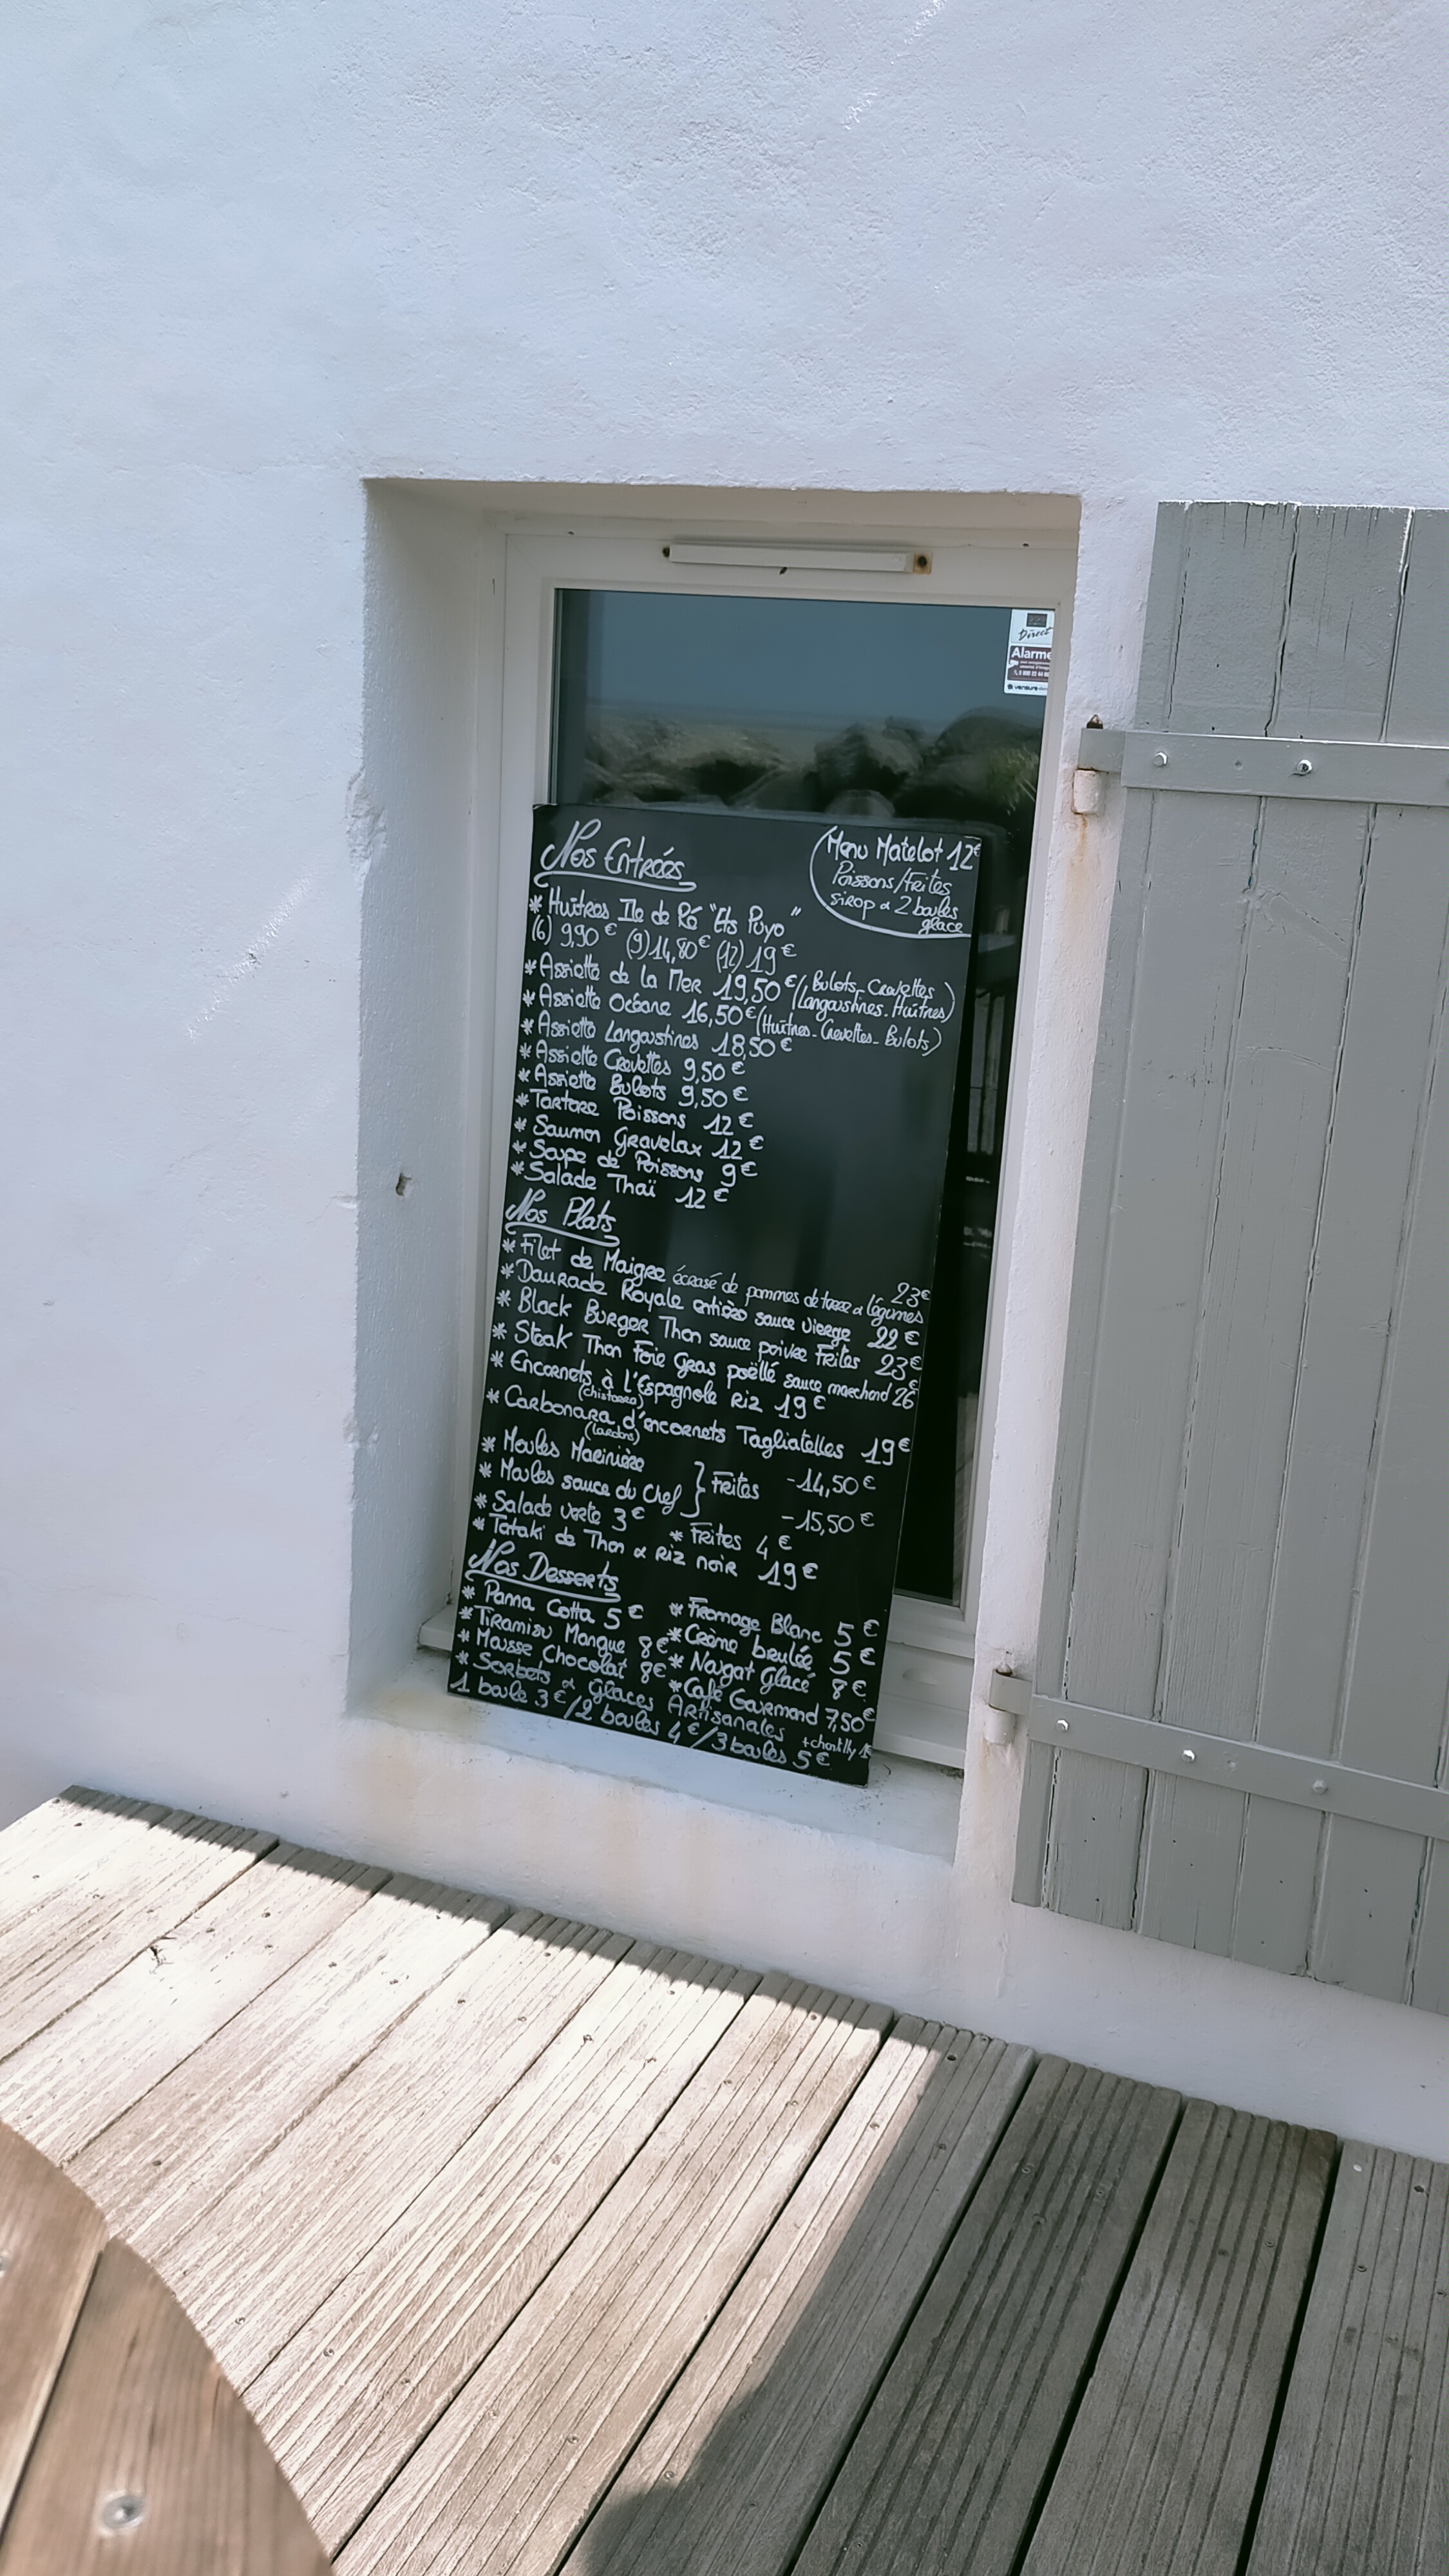 Direct
Alarme
verisure
Nos Entrées
Menu Matelot 12€
Poissons/Frites
sirop & 2 boules
glace
* Huîtres Ile de Ré "Ets Puyo"
(6) 9,90€ (9) 14,80€ (12) 19€
* Assiette de la Mer 19,50€ (Bulots-Crevettes
Langoustines-Huîtres)
* Assiette Océane 16,50€ (Huîtres-Crevettes-Bulots)
* Assiette Langoustines 18,50€
* Assiette Crevettes 9,50€
* Assiette Bulots 9,50€
* Tartare Poissons 12€
* Saumon Gravelax 12€
* Soupe de Poissons 9€
* Salade Thaï 12€
Nos Plats
* Filet de Maigre écrasé de pommes de terre & légumes 23€
* Daurade Royale entière sauce vierge 22€
* Black Burger Thon sauce poivre Frites 23€
* Steak Thon Foie Gras poëllé sauce marchand 26€
* Encornets à l'Espagnole Riz 19€
(chistorra)
* Carbonara d'encornets Tagliatelles 19€
(lardons)
* Moules Marinière
* Moules sauce du Chef } Frites -14,50€
-15,50€
* Salade verte 3€ * Frites 4€
* Tataki de Thon & Riz noir 19€
Nos Desserts
* Panna Cotta 5€ * Fromage Blanc 5€
* Tiramisu Mangue 8€ * Crème brulée 5€
* Mousse Chocolat 8€ * Nougat Glacé 8€
* Sorbets & Glaces Artisanales * Café Gourmand 7,50€
1 boule 3€/2 boules 4€/3 boules 5€ + chantilly 1€